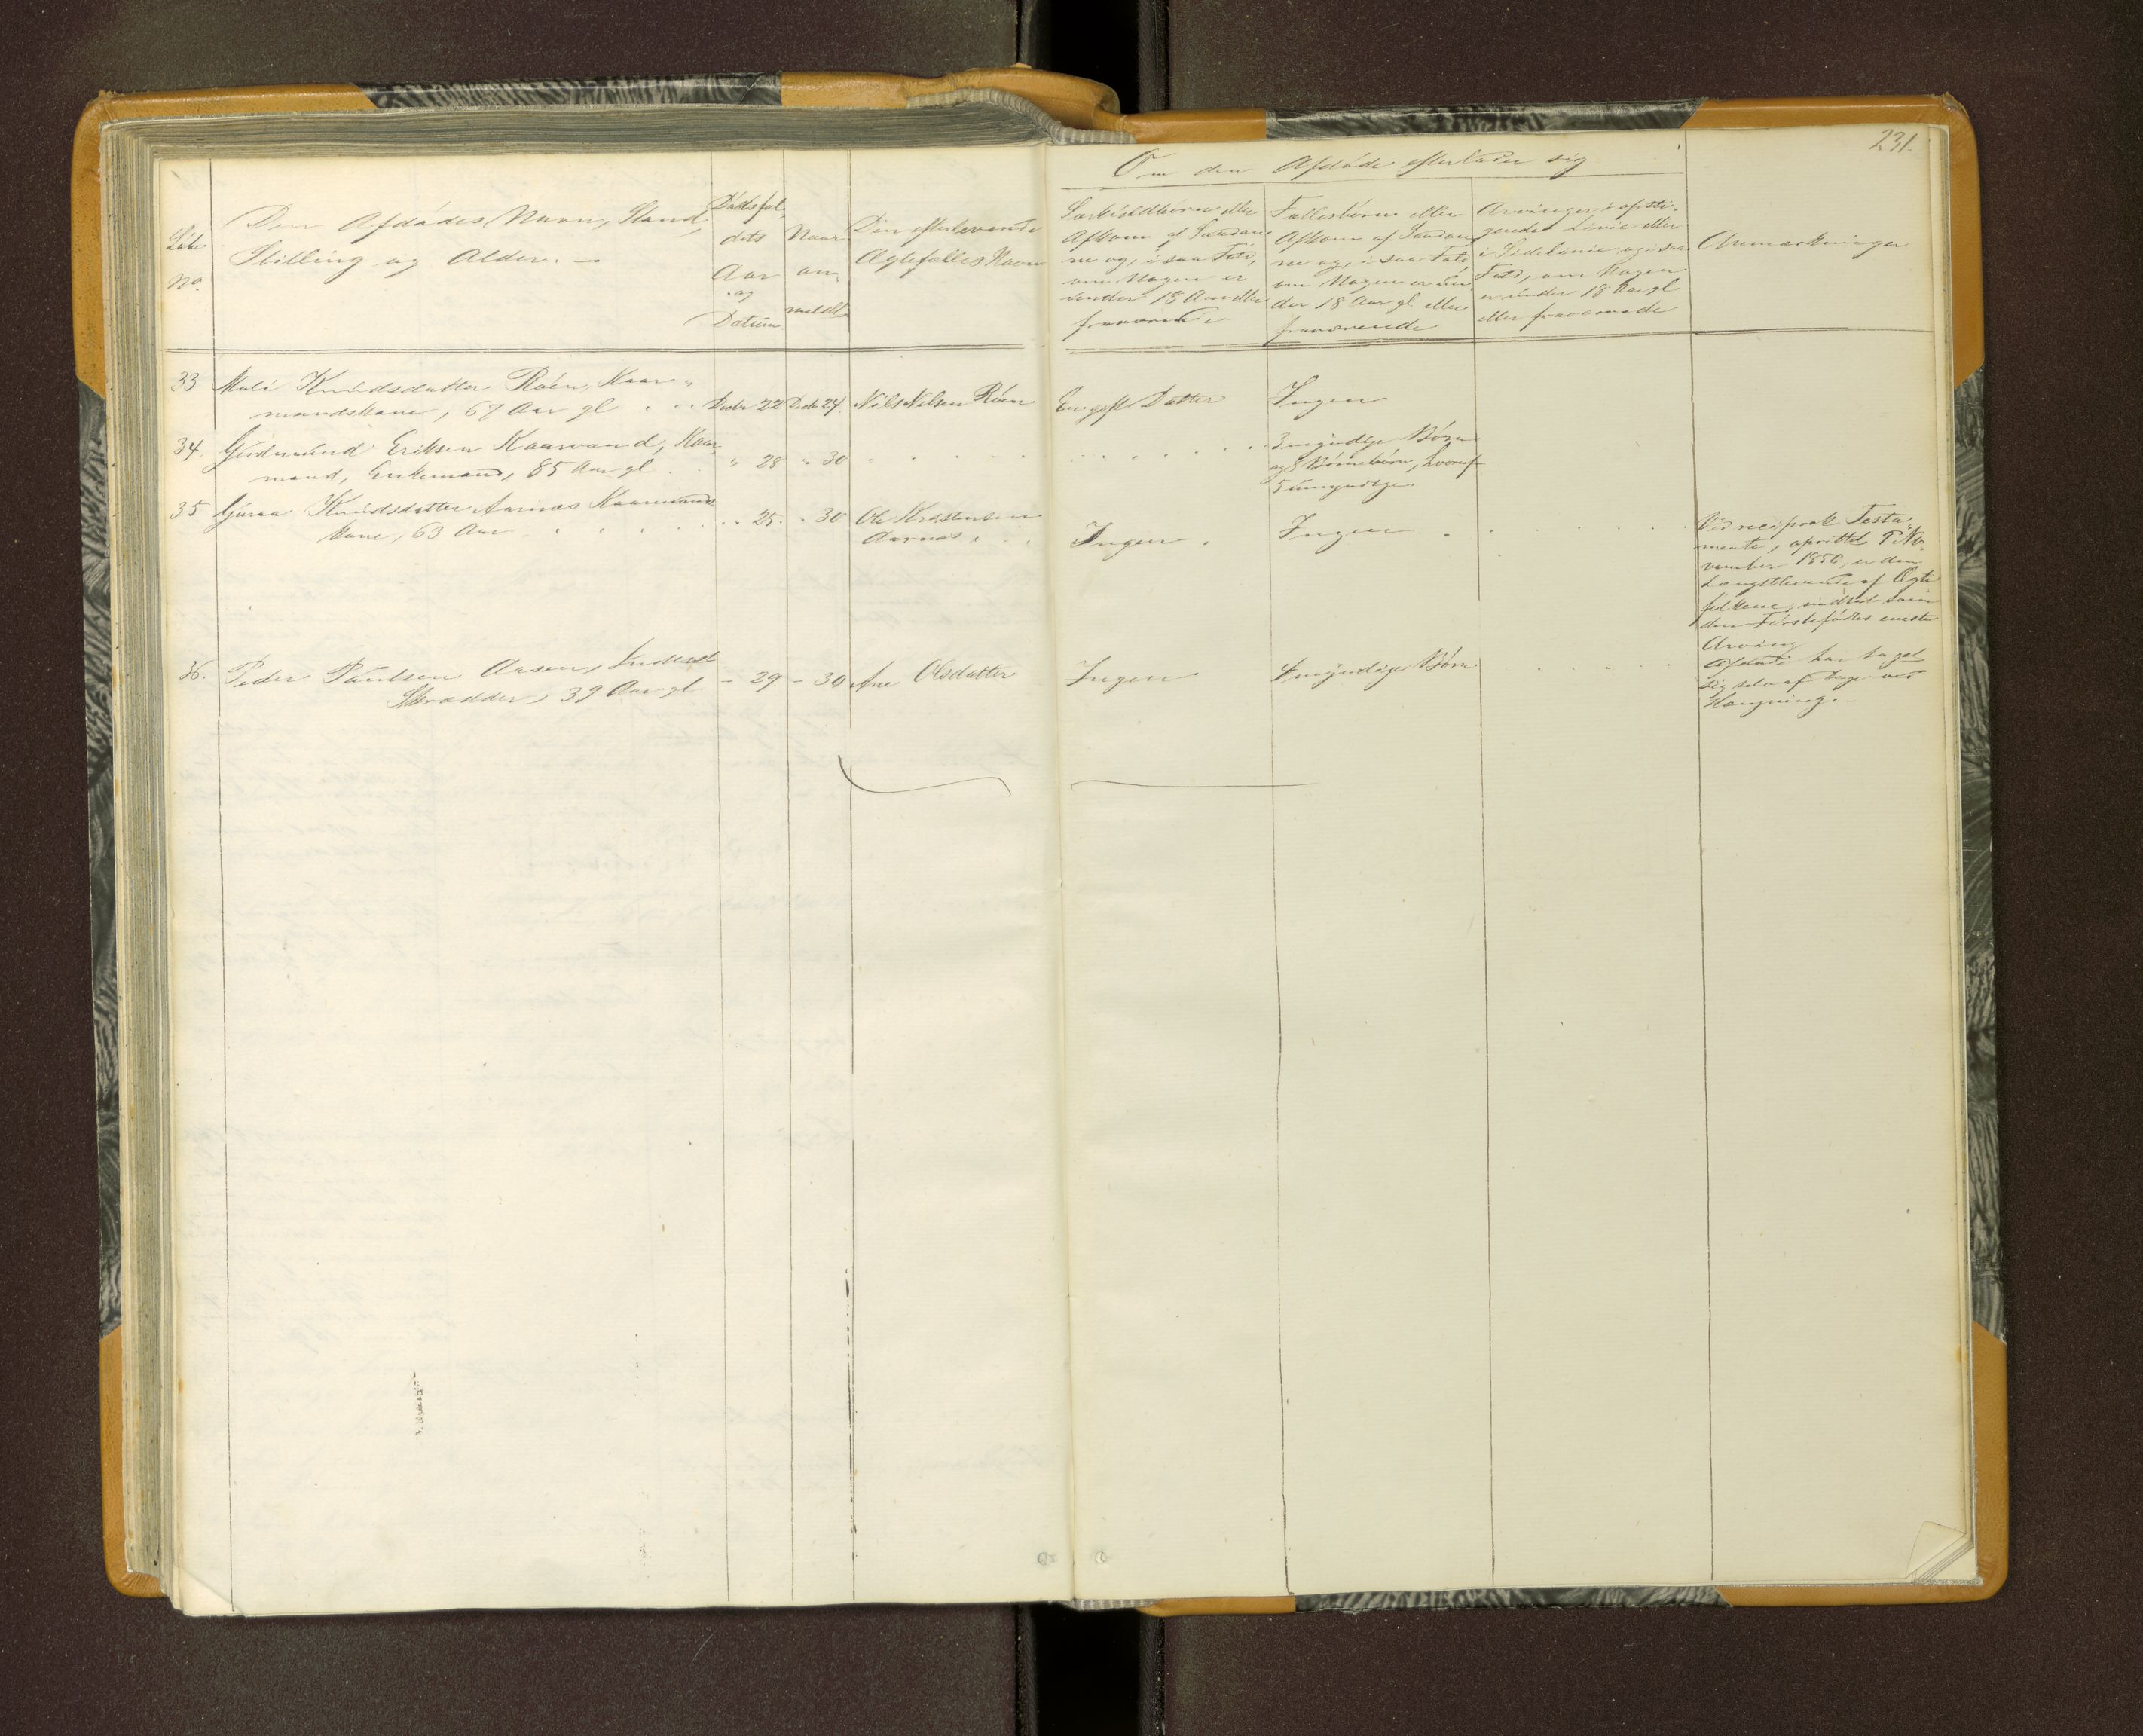 231.
Om den Afdøde efterlader sig
Løbe
No.
Den Afdødes Navn, Stand,
Stilling og Alder. —
Dødsfal-
dets
Aar
og
Datum
Naar
an-
meldt
Den efterlevende
Ægtefælles Navn
Særkuldbørn eller
Afkom af Saadan-
ne og, i saa Fald,
om Nogen er
under 18 Aar eller
fraværende
Fællesbørn eller
Afkom af Saadan-
ne og, i saa Fald
om Nogen er un-
der 18 Aar gl eller
fraværende
Arvinger i opsti-
gende Linie eller
i Sidelinie og i saa
Fald, om Nogen
er under 18 Aar gl
eller fraværende
Anmærkninger
33 Knudsdatter Røen, Kaar-
mandskone, 67 Aar gl . . . Decbr 22 Decbr 24. Nils Nilsen Røen En gift Datter Ingen
34. Gudmund Eriksen Kaarvand, Kaar-
mand, Enkemand, 85 Aar gl. " 28 " 30 3 myndige Børn
og 8 Børnebørn, hvoraf
5 umyndige.
35 Guroe Knudsdatter Aarnæs Kaarmands
kone, 63 Aar . . . . " 25. " 30 Ole Kristensen
Aarnæs . . Ingen . Ingen .
Ved reciprokt Testa-
mente, oprettet 9 No-
vember 1850, er den
Længstlevende af Ægte-
folkene indsat som
den Førstafdødes eneste
Arving
36. Peder Paulsen Aasen, Inderst
Skrædder, 39 Aar gl – 29 – 30 Ane Olsdatter Ingen Børn
Afdøde har taget
sig selv af Dage ved
Hængning. –